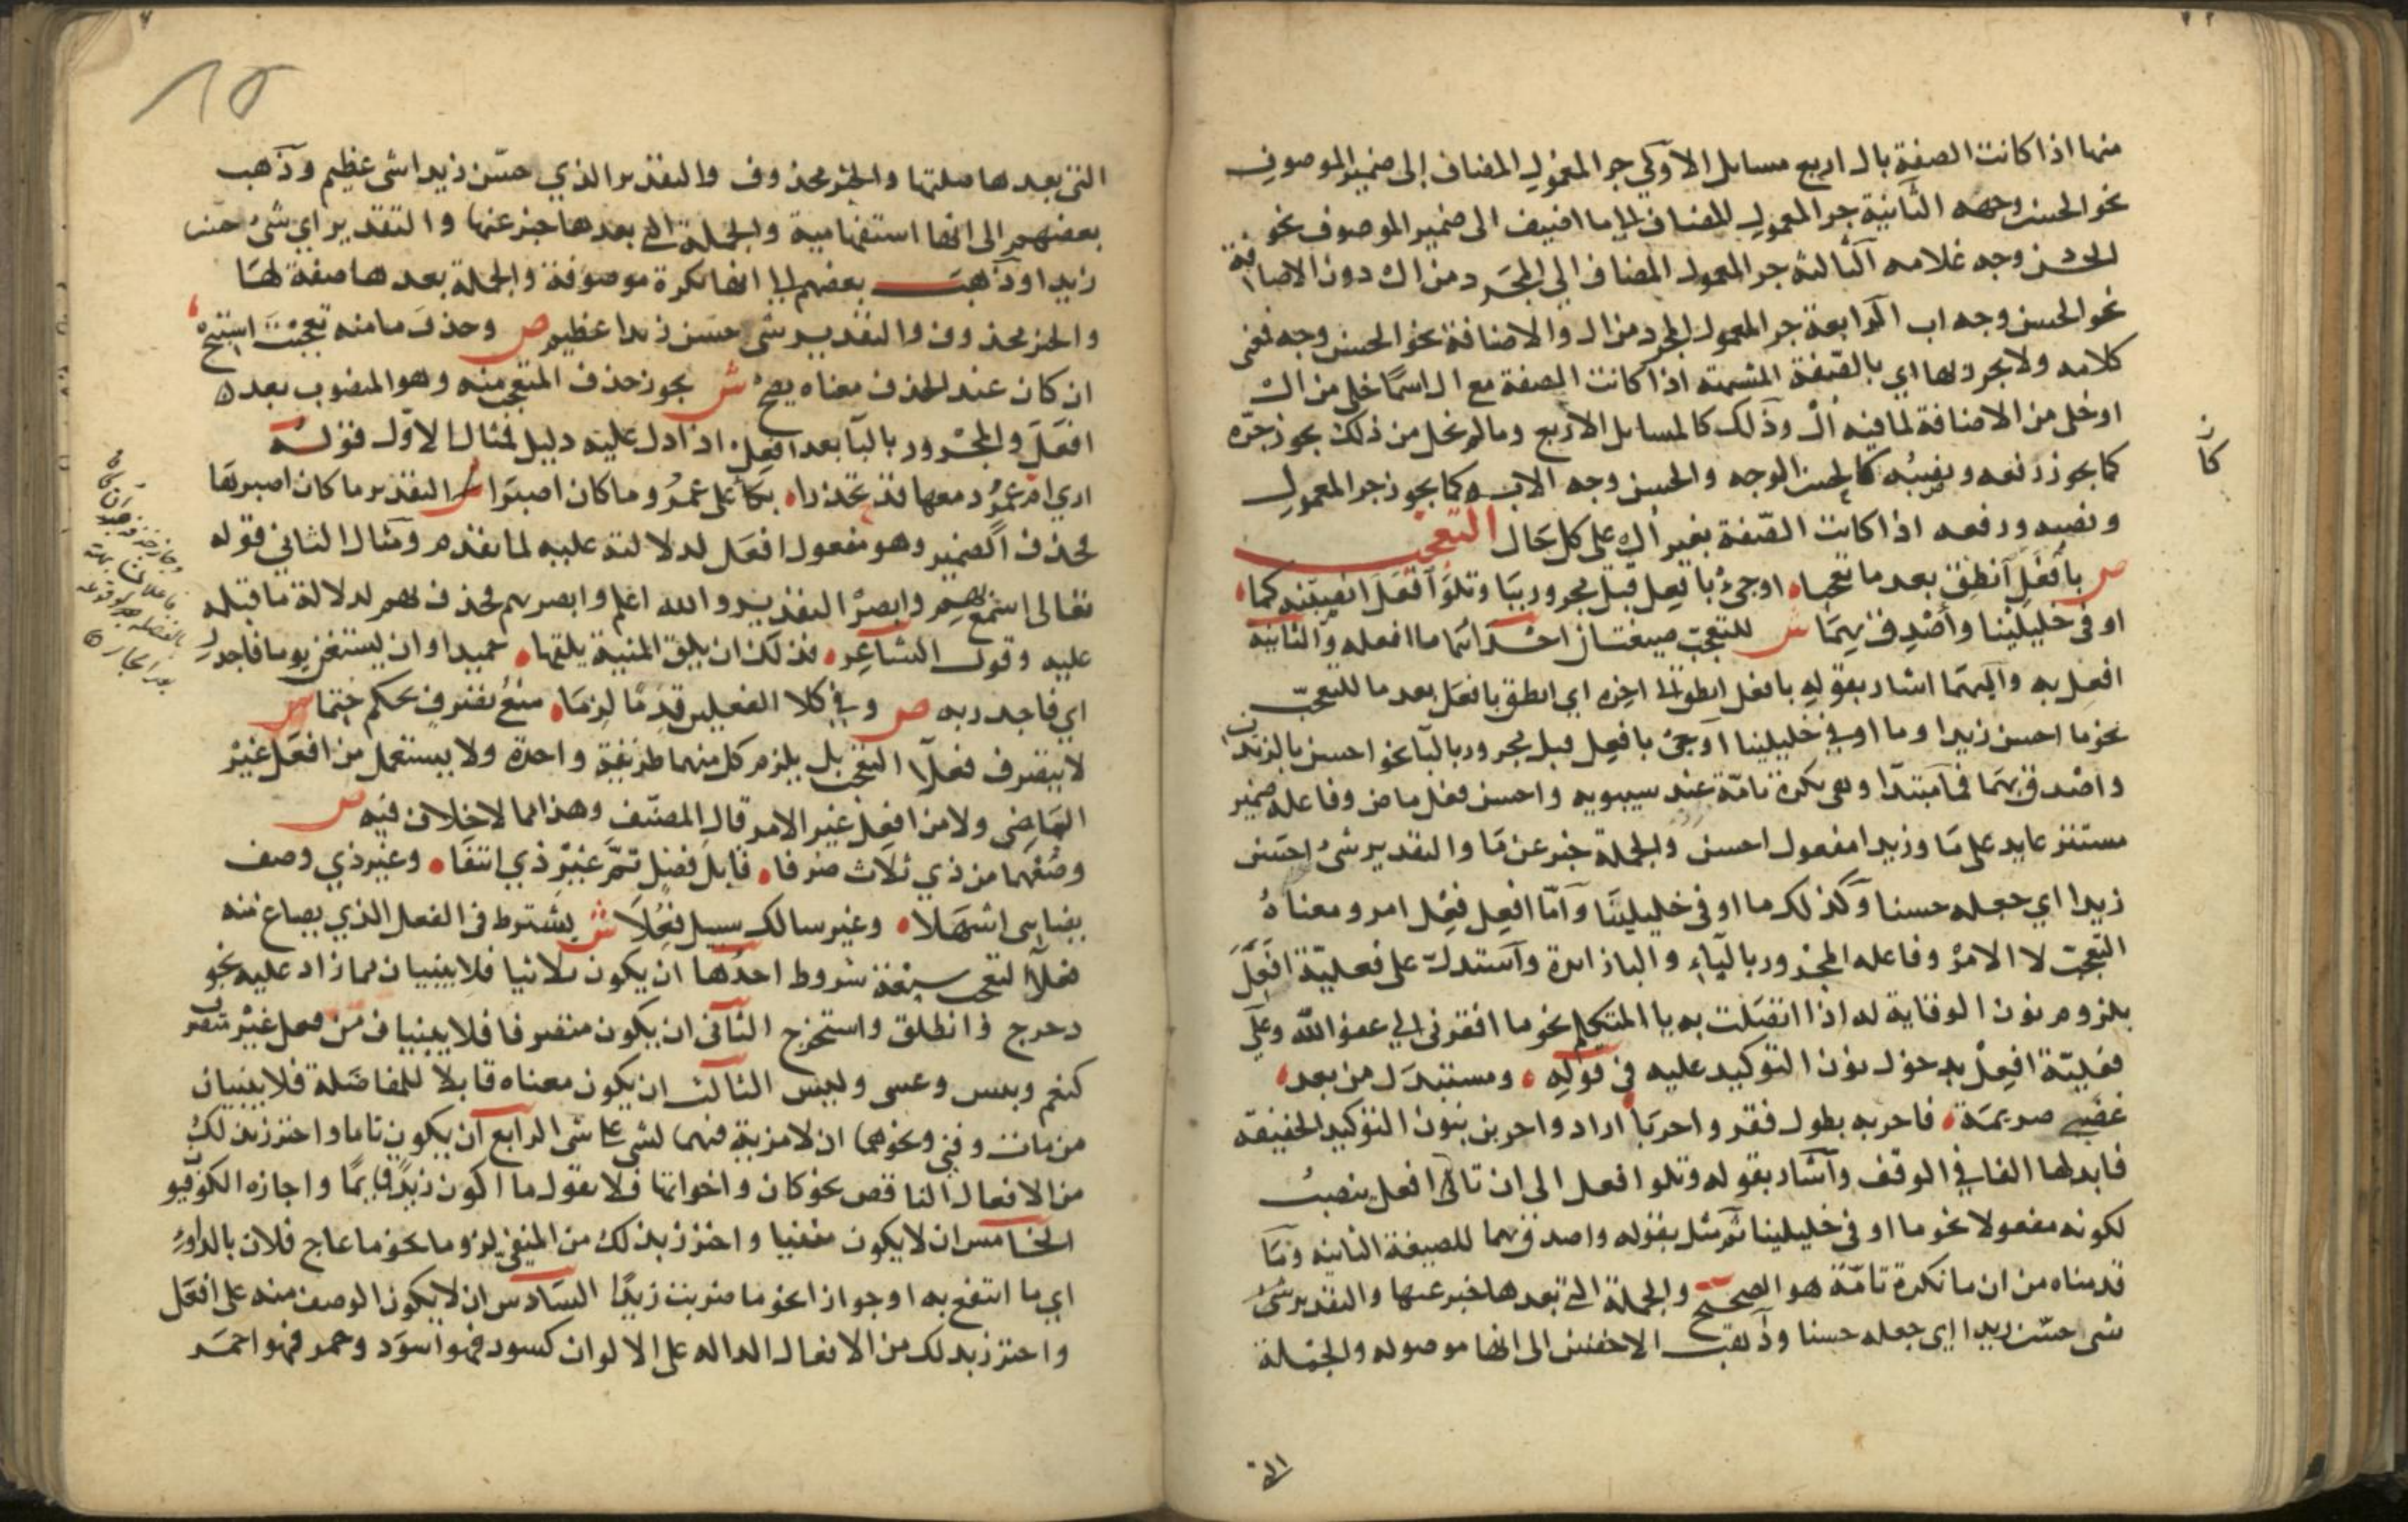 منها اذا كانت الصفة بال اربع مسايل الاولى جر المعمول المضاف الى ضمير الموصوف
نحو الحسن وجهه الثانية جر المعمول المضاف لما اضيف الى ضمير الموصوف نحو
الحسن وجه غلامه الثالثة جر المعمول المضاف الى المجرد من ال دون الاضافة
نحو الحسن وجه اب الرابعة جر المعمول المجرد من ال والاضافة نحو الحسن وجه فمعنى
كلامه ولا تجرر بها اي بالصفة المشبهة اذا كانت الصفة مع ال اسما خلى من ال
او خلى من الاضافة لما فيه ال وذلك كالمسايل الاربع وما لم يخل من ذلك يجوز جره
كما يجوز رفعه ونصبه كالحسن الوجه والحسن وجه الاب وكما يجوز جر المعمول
ونصبه ورفعه اذا كانت الصفة بغير ال على كل حال التعجب
ص بافعل انطق بعد ما تعجبا او جئ بافعل قبل مجرور ببا وتلو افعل انصبنه كما
اوفى خليلينا واصدق بهما ش للتعجب صيغتان احداهما ما افعله والثانية
افعل به واليهما اشار بقوله بافعل انطق الى اخره اي انطق بافعل بعد ما للتعجب
نحو ما احسن زيدا وما اوفى خليلينا او جئ بافعل قبل مجرور بالبا نحو احسن بالزيدين
واصدق بهما فما مبتدا وهي نكرة تامة عند سيبويه واحسن فعل ماض وفاعله ضمير
مستتر عايد على ما وزيدا مفعول احسن والجملة خبر عن ما والتقدير شئ احسن
زيدا اي جعله حسنا وكذلك ما اوفى خليلينا واما افعل ففعل امر ومعناه
التعجب لا الامر وفاعله المجرور بالباء والبا زائدة واستدل على فعلية افعل
بلزوم نون الوقاية له اذا اتصلت به يا المتكلم نحو ما افقرنى الى عفو الله وعلى
فعلية افعل بدخول نون التوكيد عليه في قوله ومستبدل من بعد
غضبى صريمة فاحر به بطول فقر واحريا اراد واحرين بنون التوكيد الخفيفة
فابدلها الفا في الوقف واشار بقوله وتلو افعل الى ان تالى افعل ينصب
لكونه مفعولا نحو ما اوفى خليلينا ثم مثل بقوله واصدق بهما للصيغة الثانية وما
قدمناه من ان ما نكرة تامة هو الصحيح والجملة التي بعدها خبر عنها والتقدير شئ
شى حسن زيدا اي جعله حسنا وذهب الاخفش الى انها موصوله والجملة
كان
التى
١٥
التى بعدها صلتها والخبر محذوف والتقدير الذي حسن زيدا شى عظيم وذهب
بعضهم الى انها استفهامية والجملة التي بعدها خبر عنها والتقدير اي شئ حسن
زيدا وذهب بعضهم الى انها نكرة موصوفة والجملة بعدها صفة لها
والخبر محذوف والتقدير شى حسن زيدا عظيم ص وحذف ما منه تعجبت استبح
ان كان عند الحذف معناه يضح ش يجوز حذف المتعجب منه وهو المنصوب بعد
افعل والمجرور بالبا بعد افعل اذا دل عليه دليل فمثال الاول قوله
ارى ام عمرو دمعها قد تحدرا بكا على عمرو وما كان اصبرا التقدير ما كان اصبرها
فحذف الضمير وهو مفعول افعل للدلالة عليه لما تقدم ومثال الثاني قوله
تعالى اسمع بهم وابصر التقدير والله اعلم وابصر بهم فحذف بهم لدلالة ما قبله
عليه وقول الشاعر فذلك ان يلق المنية يلقها حميدا وان يستغن يوما فاجدر
اي فاجدر به ص وفي كلا الفعلين قدما لزما منع تصرف بحكم حتما ش
لا يتصرف فعلا التعجب بل يلزم كل منهما طريقة واحدة ولا يستعمل من افعل غير
الماضى ولا من افعل غير الامر قال المصنف وهذا مما لا خلاف فيه ص
وصغهما من ذي ثلاث صرفا قابل فضل تم غير ذي انتفا وغير ذي وصف
يضاهى اشهلا وغير سالك سبيل فعلا ش يشترط في الفعل الذي يصاغ منه
فعلا التعجب سبعة شروط احدها ان يكون ثلاثيا فلا يبنيان مما زاد عليه نحو
دحرج وانطلق واستخرج الثانى ان يكون متصرفا فلا يبنيان من فعل غير متصرف
كنعم وبئس وعسى وليس الثالث ان يكون معناه قابلا للمفاضلة فلا يبنيان
من مات وفني ونحوهما اذ لا مزية فيهما لشى على شى الرابع ان يكون تاما واحترز بذلك
من الافعال الناقصه نحو كان واخواتها فلا تقول ما اكون زيدا قايما واجازه الكوفيو
الخامس ان لا يكون منفيا واحترز بذلك من المنفى لزوما نحو ما عاج فلان بالدواء
اي ما انتفع به او جوازا نحو ما ضربت زيدا السادس ان لا يكون الوصف منه على افعل
واحترز بذلك من الافعال الداله على الالوان كسود فهو اسود وحمر فهو احمر